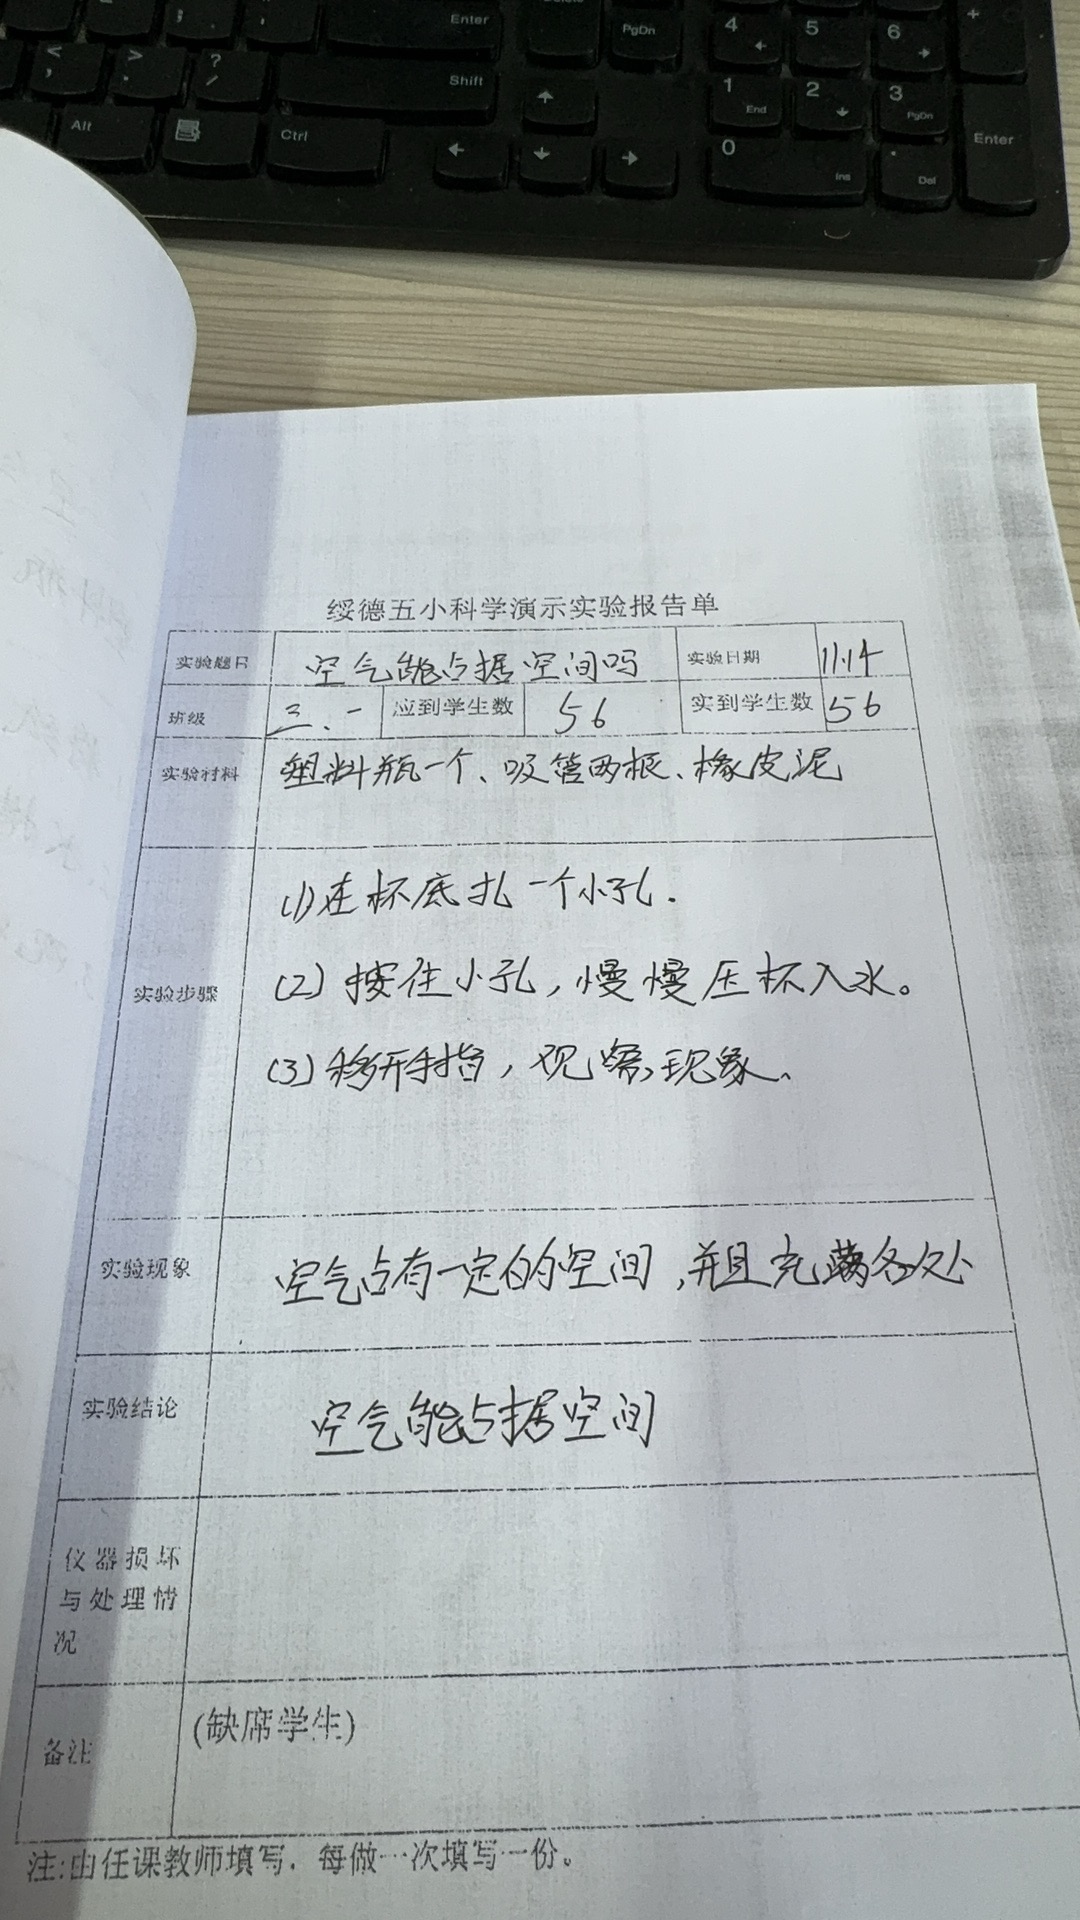 Enter
PgDn
4
5
6
+
<
,
>
.
?
/
Shift
1
End
2
3
PgDn
Alt
Ctrl
0
Ins
.
Del
Enter
绥德五小科学演示实验报告单
实验题目 空气能占据空间吗 实验日期 11.14
班级 三.一 应到学生数 56 实到学生数 56
实验材料 塑料瓶一个、吸管两根、橡皮泥
实验步骤
(1)在杯底扎一个小孔.
(2)按住小孔,慢慢压杯入水。
(3)移开手指,观察现象、
实验现象 空气占有一定的空间,并且充满各处
实验结论 空气能占据空间
仪器损坏
与处理情
况
备注 (缺席学生)
注:由任课教师填写.每做一次填写一份。